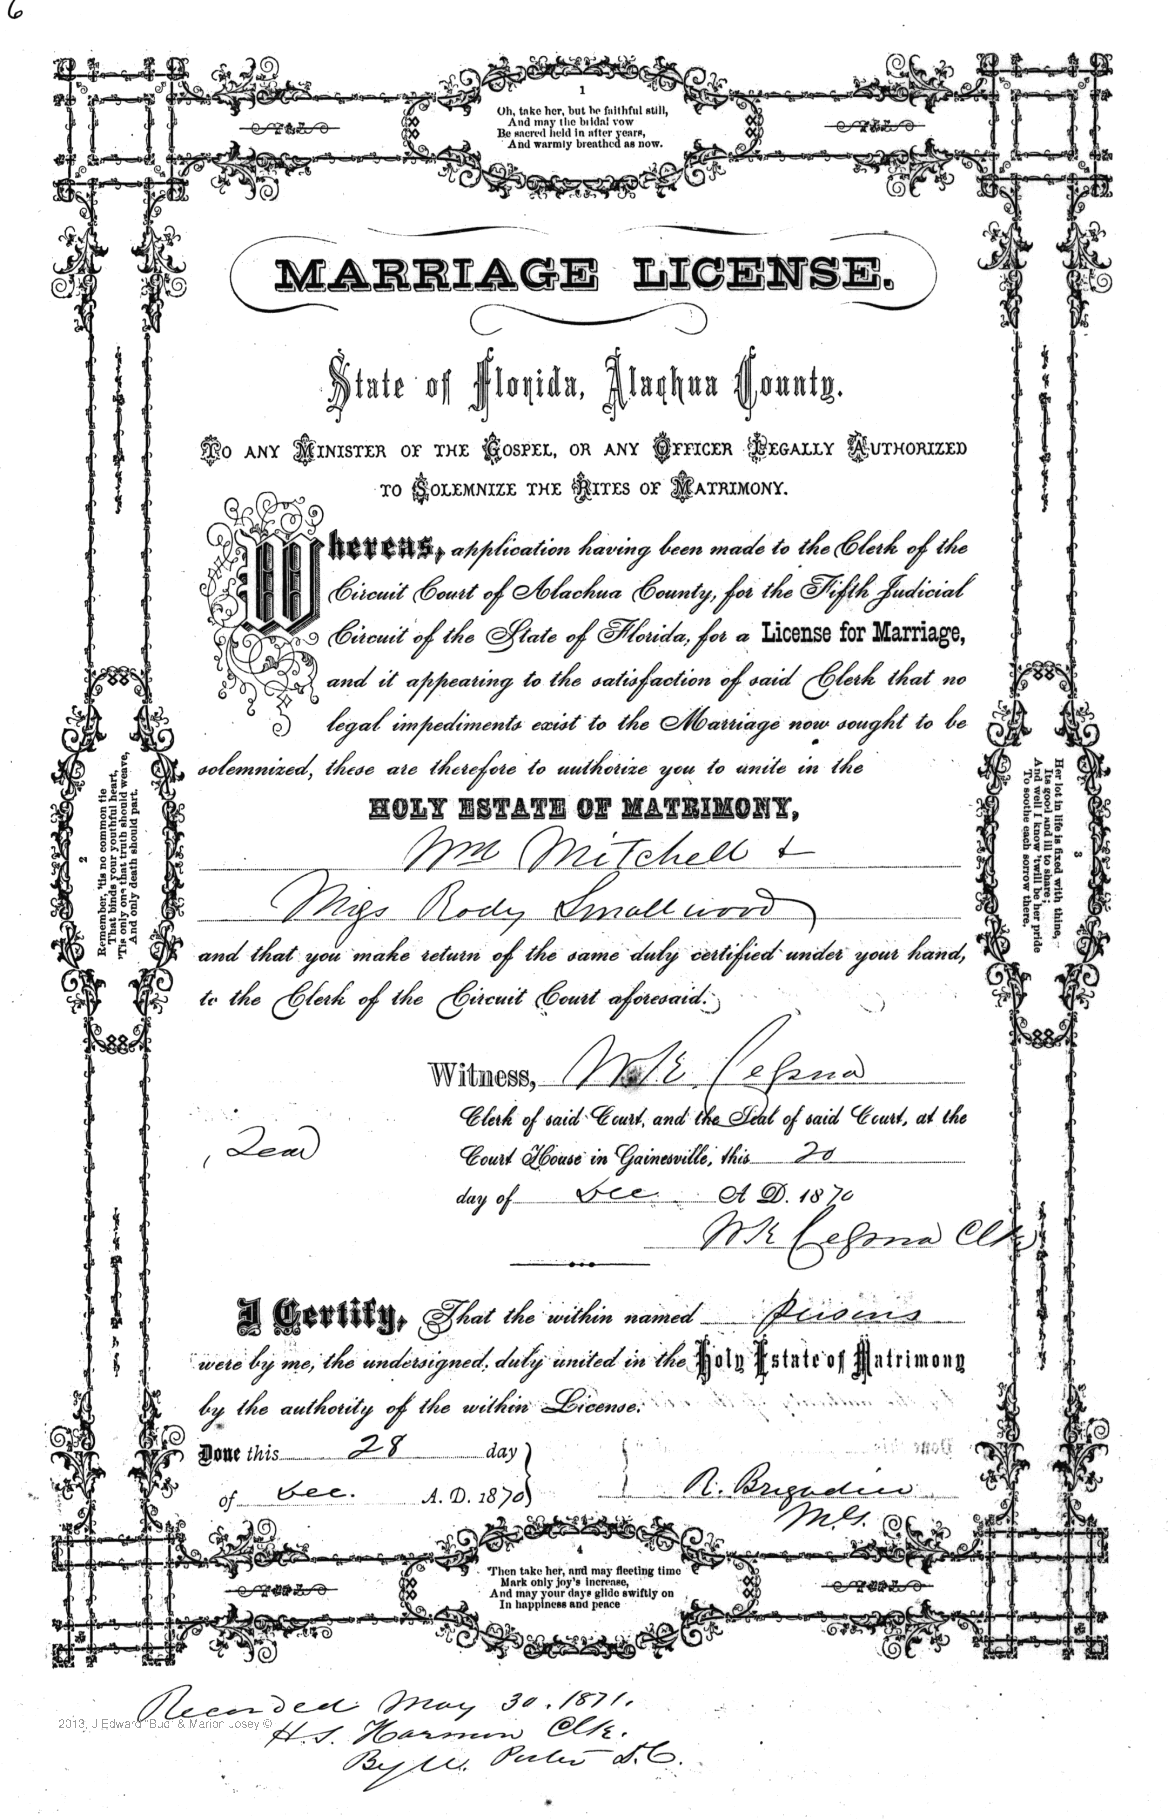 6
1
Oh, take her, but be faithful still,
And may the bridal vow
Be sacred held in after years,
And warmly breathed as now.
MARRIAGE LICENSE.
State of Florida, Alachua County.
TO ANY MINISTER OF THE GOSPEL, OR ANY OFFICER LEGALLY AUTHORIZED
TO SOLEMNIZE THE RITES OF MATRIMONY.
Whereas, application having been made to the Clerk of the
Circuit Court of Alachua County, for the Fifth Judicial
Circuit of the State of Florida, for a License for Marriage,
and it appearing to the satisfaction of said Clerk that no
legal impediments exist to the Marriage now sought to be
solemnized, these are therefore to authorize you to unite in the
HOLY ESTATE OF MATRIMONY,
Wm Mitchell &
Miss Rody Smallwood
and that you make return of the same duly certified under your hand,
to the Clerk of the Circuit Court aforesaid.
2
Remember, 'tis no common tie
That binds your youthful heart,
'Tis only one that truth should weave,
And only death should part.
3
Her lot in life is fixed with thine,
Its good and ill to share;
And well I know 'twill be her pride
To soothe each sorrow there.
Witness, W K Cessna
Clerk of said Court, and the Seal of said Court, at the
Seal
Court House in Gainesville, this 20
day of Dec A. D. 1870
W K Cessna Clk
I Certify, That the within named persons
were by me, the undersigned, duly united in the Holy Estate of Matrimony
by the authority of the within License.
Done this 28 day
of Dec. A. D. 1870
R. Brigadier
M.G.
4
Then take her, and may fleeting time
Mark only joy's increase,
And may your days glide swiftly on
In happiness and peace
Recorded May 30. 1871.
2013, J Edward "Bud" & Marion Josey ©
H. S. Harmon Clk.
By W. Porter D.C.